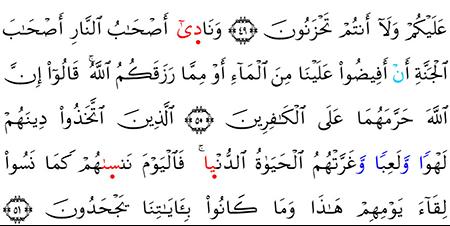 عَلَيْكُمْ وَلَآ أَنتُمْ تَحْزَنُونَ ﴿٤٩﴾ وَنَادِىٓ أَصْحَٰبُ النَّارِ أَصْحَٰبَ
الْجَنَّةِ أَنْ أَفِيضُوا۟ عَلَيْنَا مِنَ الْمَآءِ أَوْ مِمَّا رَزَقَكُمُ اللَّهُ ۚ قَالُوٓا۟ إِنَّ
اللَّهَ حَرَّمَهُمَا عَلَى الْكَٰفِرِينَ ﴿٥٠﴾ الَّذِينَ اتَّخَذُوا۟ دِينَهُمْ
لَهْوًا وَّلَعِبًا وَّغَرَّتْهُمُ الْحَيَوٰةُ الدُّنْيِا ۚ فَالْيَوْمَ نَنسِىٰهُمْ كَمَا نَسُوا۟
لِقَآءَ يَوْمِهِمْ هَٰذَا وَمَا كَانُوا۟ بِـَٔايَٰتِنَا يَجْحَدُونَ ﴿٥١﴾